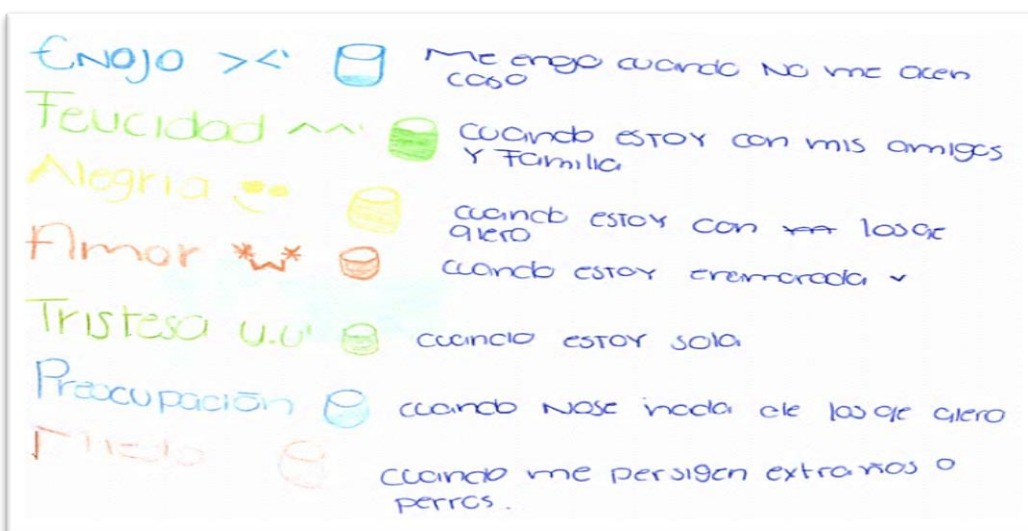 ENOJO ><' Me engo cuando No me acen
caso
Felicidad ^^' cuando ESTOY con mis amigos
Y Familia
Alegria cuando ESTOY con los qe
qiero
Amor *w* cuando ESTOY enamorada
Tristesa U.U' cuando ESTOY sola
Preocupación cuando NOSE nada de los qe qiero
Miedo cuando me persigen extraños o
perros.